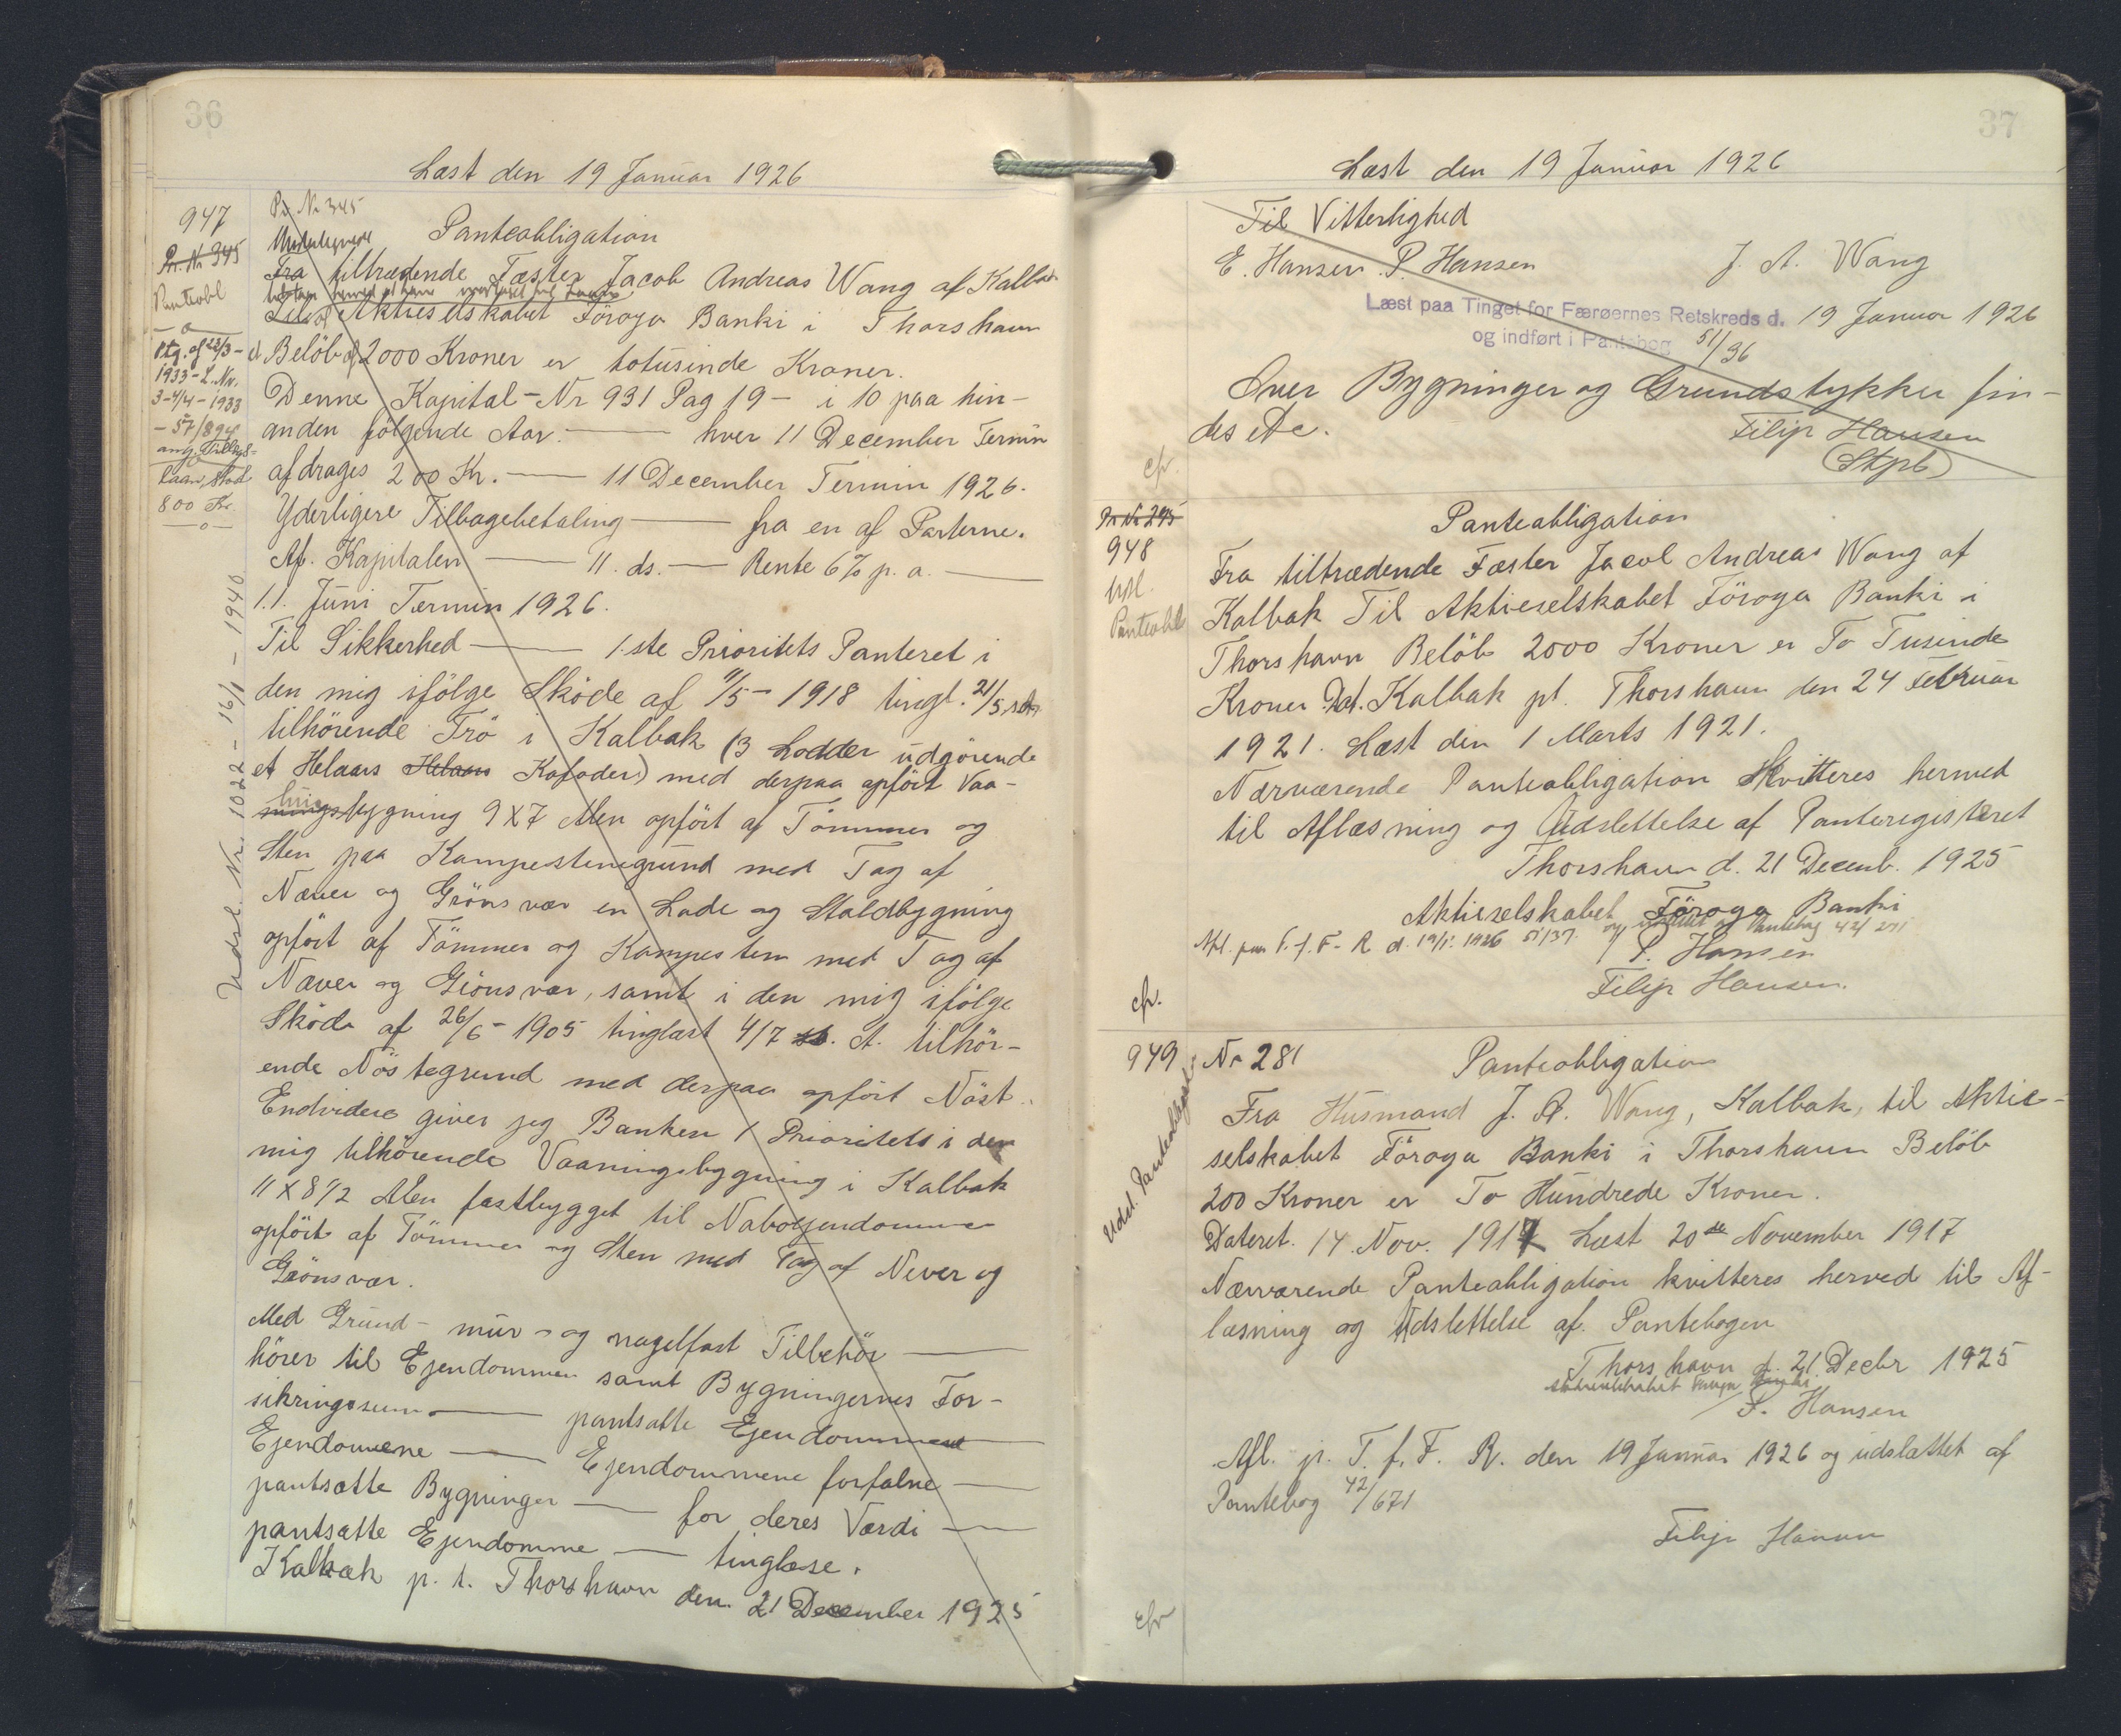 36
Læst den 19 Januar 1926
947
Pr. Nr 345
Pr. Nr 345
Panteobl
Ptg. af 28/3-
1933-L. Nr.
3-4/4-1933
-57/894
ang. Tillægs-
laan, stod
800 Kr.
Udsl. Nr. 1022-16/1-1940
Panteobligation
Undertegnede
Fra tiltrædende Fæster Jacob Andreas Wang af Kalbak
Til Aktieselskabet Föroya Banki i Thorshavn
Belöb af 2000 Kroner er totusinde Kroner.
Denne Kapital - Nr 931 Pag 19 - i 10 paa hin-
anden fölgende Aar. — hver 11 December Termin
afdrages 200 Kr. — 11 December Termin 1926.
Yderligere Tilbagebetaling — fra en af Parterne.
Af. Kapitalen — 11. ds. — Rente 6% p. a. —
11. Juni Termin 1926.
Til Sikkerhed — 1.ste Prioritets Panteret i
den mig ifölge Sköde af 11/5-1918 tingl. 21/5
tilhörende Trö i Kalbak (3 Lodder udgörende
et Helaars Helaars Kofoder) med derpaa opfört Vaa-
ningsbygning 9 X 7 Alen opfört af Tömmer og
Sten paa Kampestensgrund med Tag af
Næver og Grönsvær en Lade og Staldbygning
opfört af Tömmer og Kampesten med Tag af
Næver og Grönsvær, samt i den mig ifölge
Sköde af 26/6-1905 tinglæst 4/7 s. A. tilhör-
ende Nöstegrund med derpaa opfört Nöst.
Endvidere giver jeg Banken 1 Prioritets i den
mig tilhörende Vaaningsbygning i Kalbak
11 X 8 1/2 Alen fastbygget til Naboejendommen
opfört af Tömmer og Sten med Tag af Never og
Grönsvær.
Med Grund- mur- og nagelfast Tilbehör —
hörer til Ejendommen samt Bygningernes For-
sikringssum — pantsatte Ejendomme
Ejendomene — Ejendommene forfalne —
pantsatte Bygninger — for deres Værdi —
pantsatte Ejendomme — tinglæse.
Kalbæk p. t. Thorshavn den 21 December 1925
37
Læst den 19 Januar 1926
Til Vitterlighed
E. Hansen. P. Hansen J. A. Wang
Læst paa Tinget for Færøernes Retskreds d. 19 Januar 1926
og indført i Pantebog 51/36
Over Bygninger og Grundstykker fin-
des etc. Filip Hansen
(Stpl)
cfr.
Pr Nr 295
948
Panteobl
Panteobligation
Fra tiltrædende Fæster Jacob Andreas Wang af
Kalbak Til Aktieselskabet Föroya Banki i
Thorshavn Belöb 2000 Kroner er To Tusinde
Kroner Dat. Kalbak pt. Thorshavn den 24 Februar
1921. Læst den 1 Marts 1921.
Nærværende Panteobligation Kvitteres hermed
til Aflæsning og Udslettelse af Panteregisteret
Thorshavn d. 21 Decemb. 1925
Aktieselskabet Föroya Banki
P. Hansen
Afl. paa T. f. F. R. d. 19/1. 1926 51/37. og udslettet af Pantebog
Filip Hansen.
cfr.
949
Udsl. Panteobligat
Nr 281 Panteobligation
Fra Husmand J. A. Wang, Kalbak, til Aktie-
selskabet Föroya Banki i Thorshavn Belöb
200 Kroner er To Hundrede Kroner.
Dateret. 14. Nov. 1917 Læst 20de November 1917
Nærværende Panteobligation kvitteres herved til Af-
læsning og Udslettelse af Pantebogen
Thorshavn d. 21 Decbr 1925
Aktieselskabet Föroya Banki
P. Hansen
Afl. p. T. f. F. R. den 19 Januar 1926 og udslættet af
Pantebog 42/671
Filip Hansen
cfr